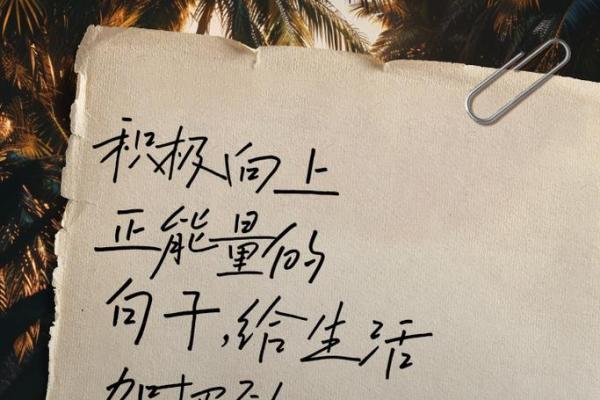 积极向上
正能量的
句子,给生活